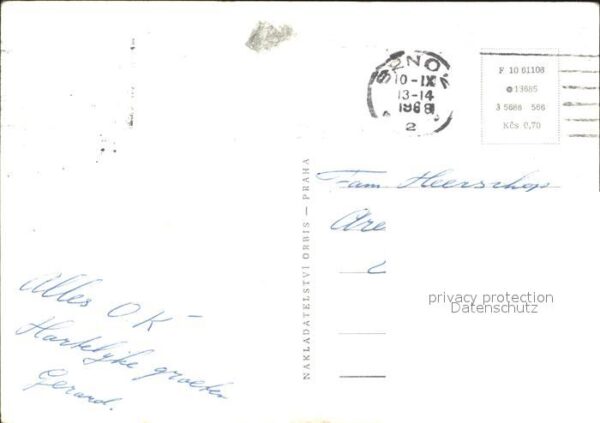 BRNO
10-IX
13-14
1968
2
F 10 61108
13685
3 5686 566
Kčs 0,70
NAKLADATELSTVÍ ORBIS — PRAHA
Fam Heerschop
Are
privacy protection
Datenschutz
Alles OK
Hartelijke groeten
Gerard.